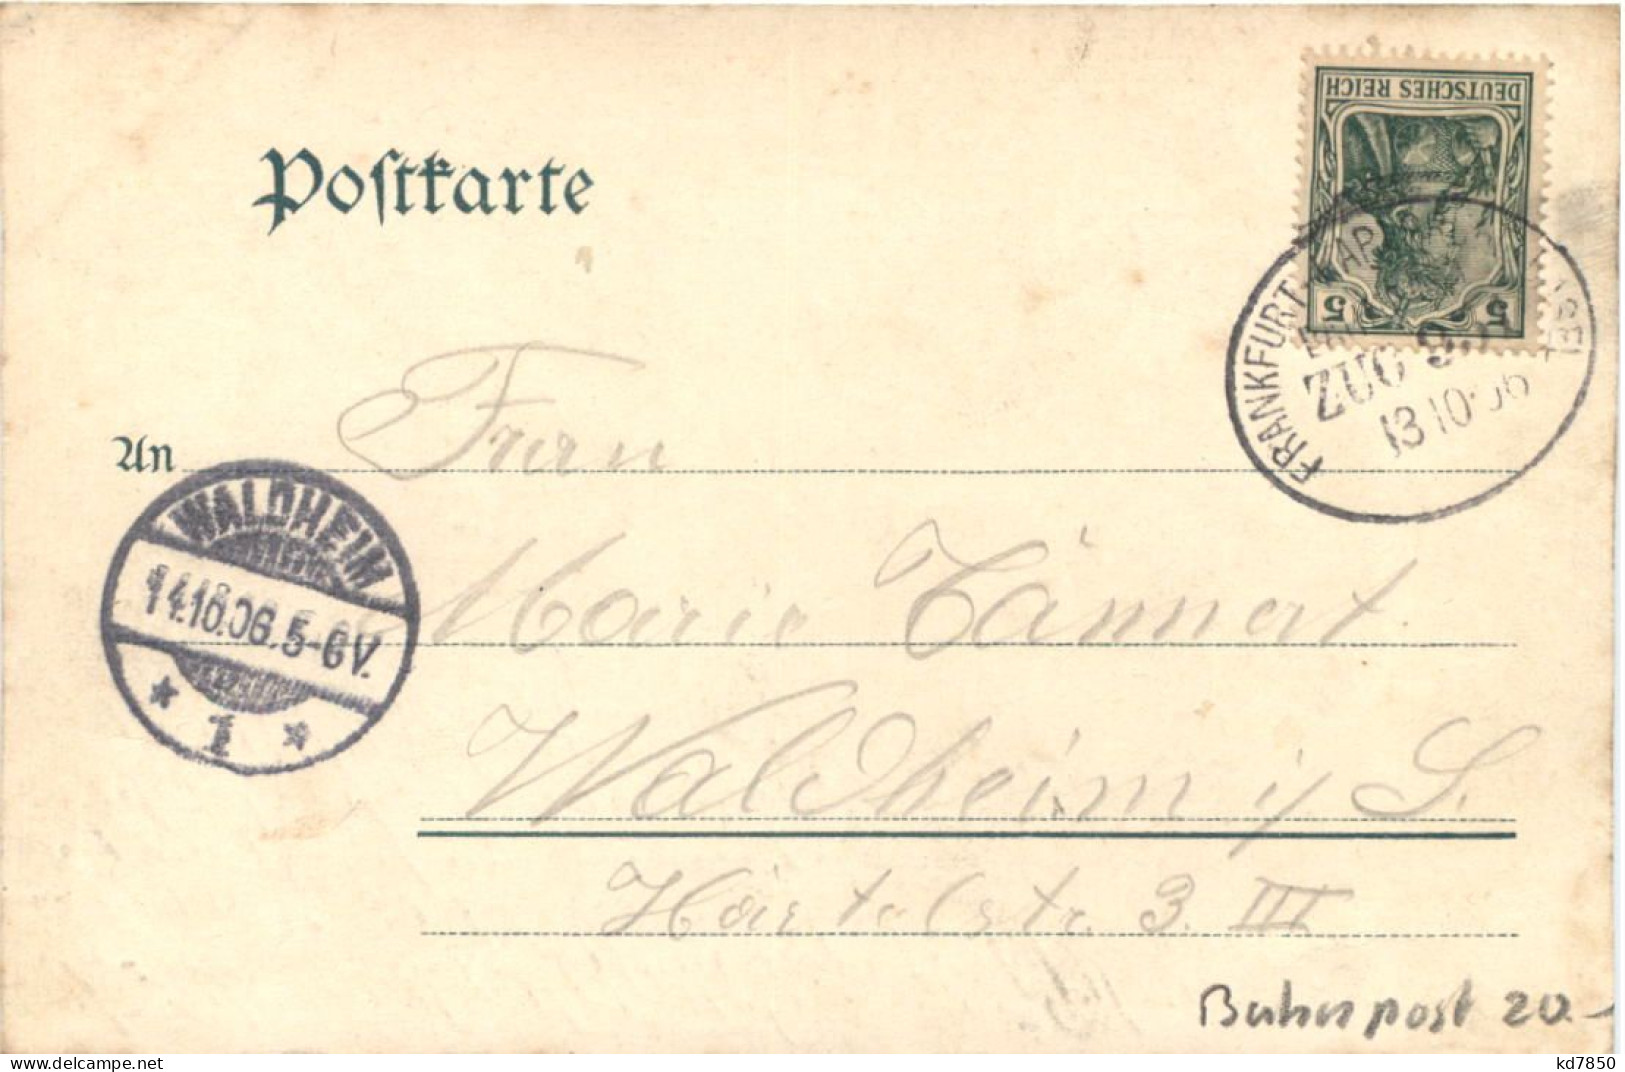 Postkarte
DEUTSCHES REICH
5 5
FRANKFURT
ZUG
13.10.06
An Frau
WALDHEIM
14.10.06.5-6V.
* 1 *
Marie Tännert
Waldheim i/S.
Härtelstr. 3. III
Bahnpost 20.-
kd7850
delcampe.net